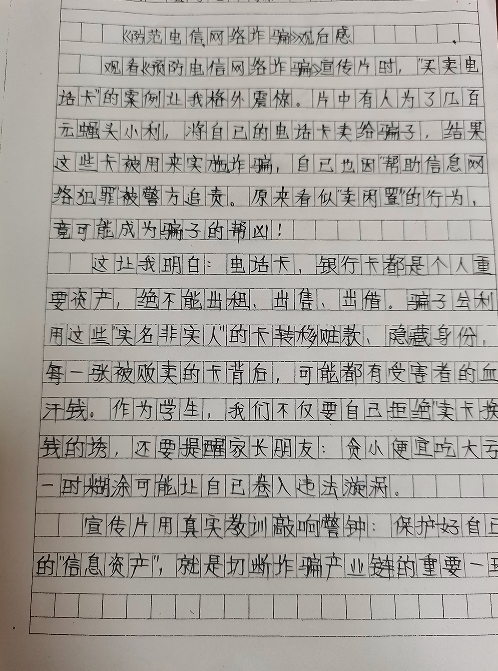 《防范电信网络诈骗》观后感
观看《预防电信网络诈骗》宣传片时，“买卖电
话卡”的案例让我格外震惊。片中有人为了几百
元蝇头小利，将自己的电话卡卖给骗子，结果
这些卡被用来实施诈骗，自己也因“帮助信息网
络犯罪”被警方追责。原来看似“卖闲置”的行为，
竟可能成为骗子的帮凶！
这让我明白：电话卡、银行卡都是个人重
要资产，绝不能出租、出售、出借。骗子会利
用这些“实名非实人”的卡转移赃款、隐藏身份，
每一张被贩卖的卡背后，可能都有受害者的血
汗钱。作为学生，我们不仅要自己拒绝“卖卡换
钱的诱，还要提醒家长朋友：贪小便宜吃大亏
一时糊涂可能让自己卷入违法漩涡。
宣传片用真实教训敲响警钟：保护好自己
的“信息资产”，就是切断诈骗产业链的重要一环